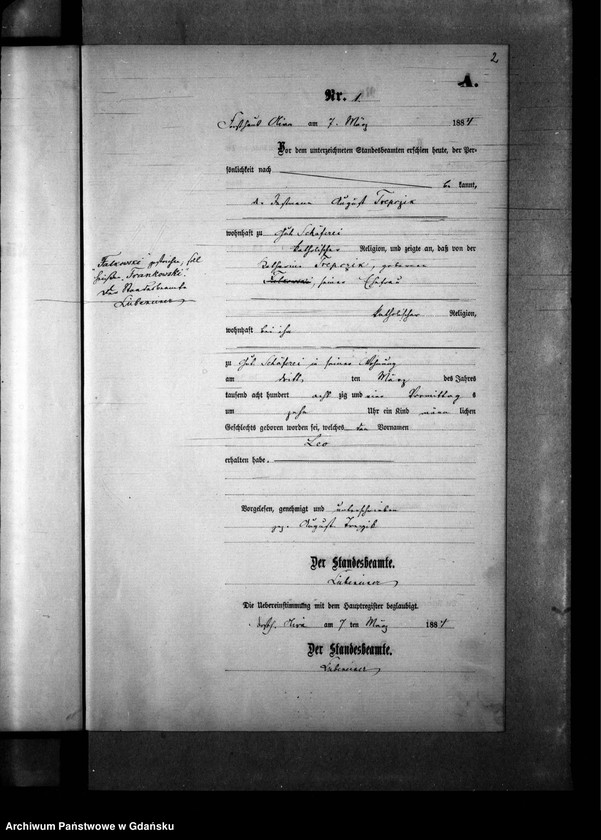 2
A.
Nr. 1.
am 7. März 1884
Vor dem unterzeichneten Standesbeamten erschien heute, der Per-
sönlichkeit nach
be kannt,
August Treprzik
wohnhaft zu Gut Schäferei
katholischer Religion, und zeigte an, daß von der
Katharina Treprzik, geborenen
seiner Ehefrau
katholischer Religion,
wohnhaft bei ihm
zu Gut Schäferei in seiner Wohnung
am dritten März des Jahres
tausend acht hundert acht zig und Vormittag s
um zehn Uhr ein Kind männ lichen
Geschlechts geboren worden sei, welches den Vornamen
Leo
erhalten habe.
Vorgelesen, genehmigt und unterschrieben
gez. August
Der Standesbeamte.
Die Uebereinstimmung mit dem Hauptregister beglaubigt.
am 7 ten März 1884
Der Standesbeamte.
"Falkowski" gestrichen,
"Frankowski".
Der Standesbeamte
Archiwum Państwowe w Gdańsku